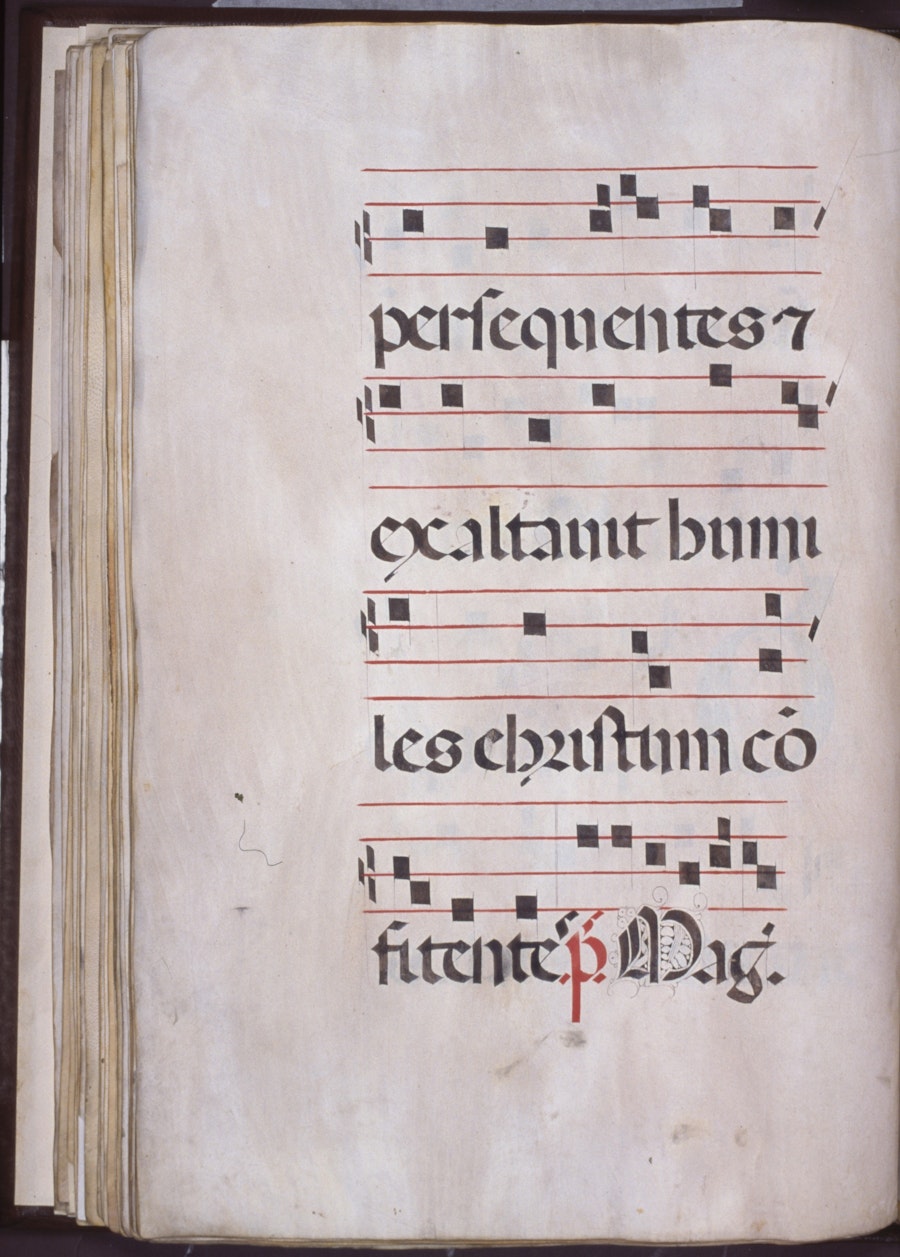 persequentes ⁊
exaltauit humi
les christum cō
fitente(s) p̄. Maḡ.